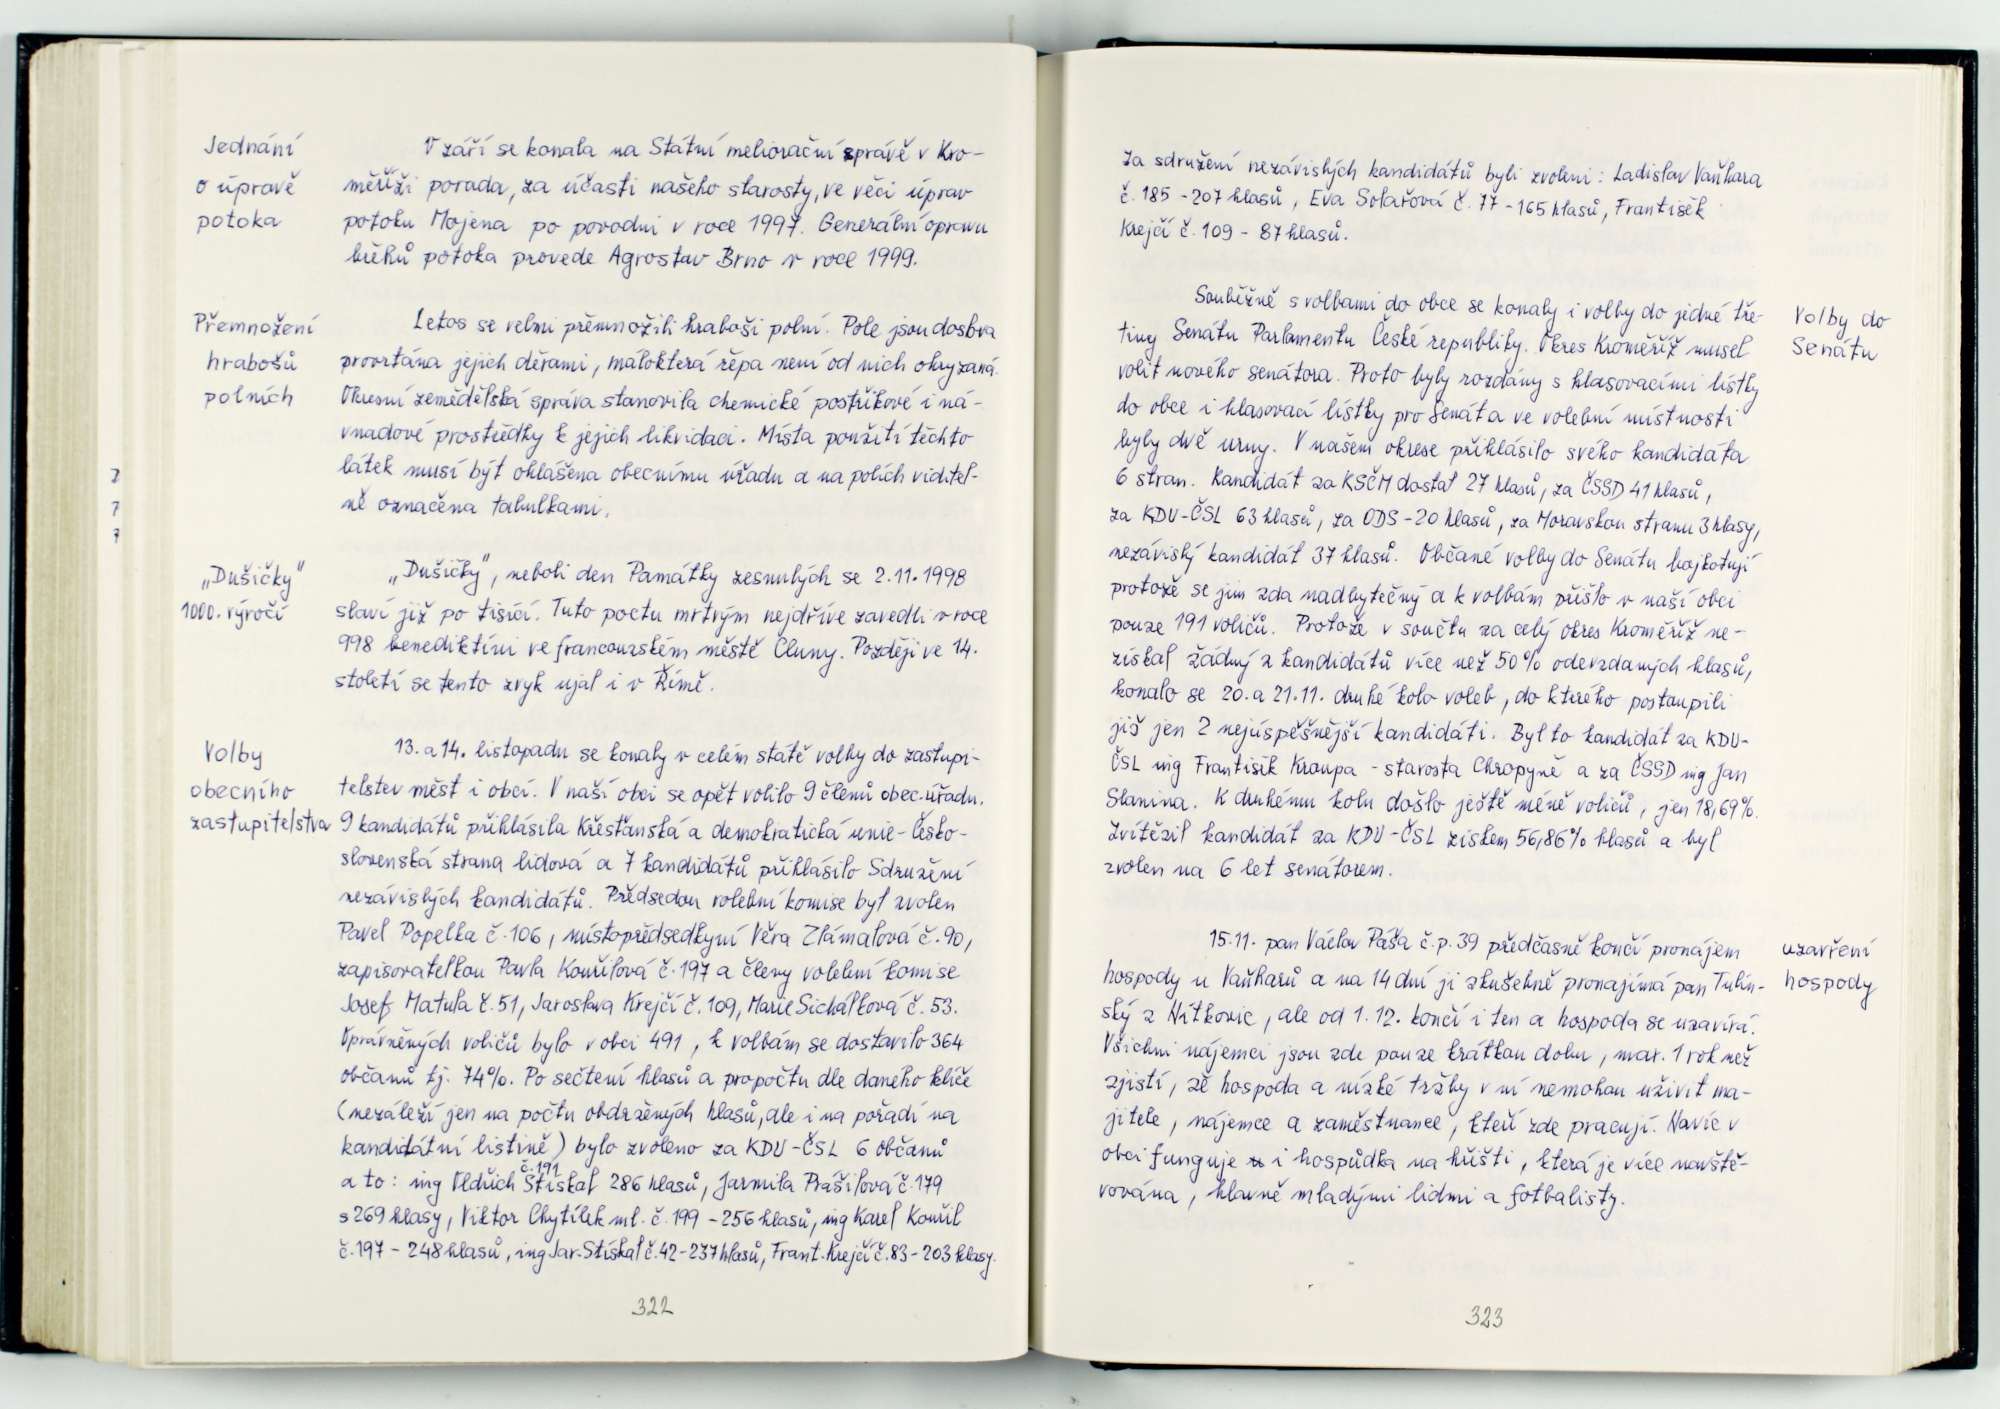 Jednání
o úpravě
potoka
V září se konala na Státní meliorační správě v Kro-
měříži porada, za účasti našeho starosty, ve věci úprav
potoku Mojena po povodni v roce 1997. Generální opravu
břehů potoka provede Agrostav Brno v roce 1999.
Přemnožení
hrabošů
polních
Letos se velmi přemnožili hraboši polní. Pole jsou doslova
provrtána jejich děrami, málokterá řepa není od nich ohryzaná.
Okresní zemědělská správa stanovila chemické postřikové i ná-
vnadové prostředky k jejich likvidaci. Místa použití těchto
látek musí být ohlášena obecnímu úřadu a na polích viditel-
ně označena tabulkami.
„Dušičky"
1000. výročí
„Dušičky", neboli den Památky zesnulých se 2.11.1998
slaví již po tisící. Tuto poctu mrtvým nejdříve zavedli v roce
998 benediktini ve francouzském městě Cluny. Později ve 14.
století se tento zvyk ujal i v Římě.
Volby
obecního
zastupitelstva
13. a 14. listopadu se konaly v celém státě volby do zastupi-
telstev měst i obcí. V naší obci se opět volilo 9 členů obec.úřadu.
9 kandidátů přihlásila Křesťanská a demokratická unie - Česko-
slovenská strana lidová a 7 kandidátů přihlásilo Sdružení
nezávislých kandidátů. Předsedou volební komise byl zvolen
Pavel Popelka č.106, místopředsedkyní Věra Zlámalová č.90,
zapisovatelkou Pavla Kouřilová č.197 a členy volební komise
Josef Matula č.51, Jaroslava Krejčí č.109, Marie Sichálková č.53.
Oprávněných voličů bylo v obci 491, k volbám se dostavilo 364
občanů tj. 74%. Po sečtení hlasů a propočtu dle daného klíče
(nezáleží jen na počtu obdržených hlasů, ale i na pořadí na
kandidátní listině) bylo zvoleno za KDU-ČSL 6 občanů
č.191
a to: ing Oldřich Stískal 286 hlasů, Jarmila Prášilová č.179
s 269 hlasy, Viktor Chytílek ml. č.199 - 256 hlasů, ing Karel Kouřil
č.197 - 248 hlasů, ing Jar. Stískal č.42 - 237 hlasů, Frant. Krejčí č.83 - 203 hlasy.
322
za sdružení nezávislých kandidátů byli zvoleni: Ladislav Vaňhara
č.185 - 207 hlasů, Eva Solařová č.77 - 165 hlasů, František
Krejčí č.109 - 87 hlasů.
Volby do
Senátu
Souběžně s volbami do obce se konaly i volby do jedné tře-
tiny Senátu Parlamentu České republiky. Okres Kroměříž musel
volit nového senátora. Proto byly rozdány s hlasovacími lístky
do obce i hlasovací lístky pro Senát a ve volební místnosti
byly dvě urny. V našem okrese přihlásilo svého kandidáta
6 stran. Kandidát za KSČM dostal 27 hlasů, za ČSSD 41 hlasů,
za KDU-ČSL 63 hlasů, za ODS - 20 hlasů, za Moravskou stranu 3 hlasy,
nezávislý kandidát 37 hlasů. Občané volby do Senátu bojkotují
protože se jim zdá nadbytečný a k volbám přišlo v naší obci
pouze 191 voličů. Protože v součtu za celý okres Kroměříž ne-
získal žádný z kandidátů více než 50% odevzdaných hlasů,
konalo se 20. a 21.11. druhé kolo voleb, do kterého postoupili
již jen 2 nejúspěšnější kandidáti. Byl to kandidát za KDU-
ČSL ing František Kroupa - starosta Chropyně a za ČSSD ing Jan
Slanina. K druhému kolu došlo ještě méně voličů, jen 18,69%.
Zvítězil kandidát za KDU-ČSL ziskem 56,86% hlasů a byl
zvolen na 6 let senátorem.
uzavření
hospody
15.11. pan Václav Páša č.p.39 předčasně končí pronájem
hospody u Vaňharů a na 14 dní ji zkušebně pronajímá pan Tulin-
ský z Nítkovic, ale od 1.12. končí i ten a hospoda se uzavírá.
Všichni nájemci jsou zde pouze krátkou dobu, max. 1 rok než
zjistí, že hospoda a nízké tržby v ní nemohou uživit ma-
jitele, nájemce a zaměstnance, kteří zde pracují. Navíc v
obci funguje i hospůdka na hřišti, která je více navště-
vována, hlavně mladými lidmi a fotbalisty.
323